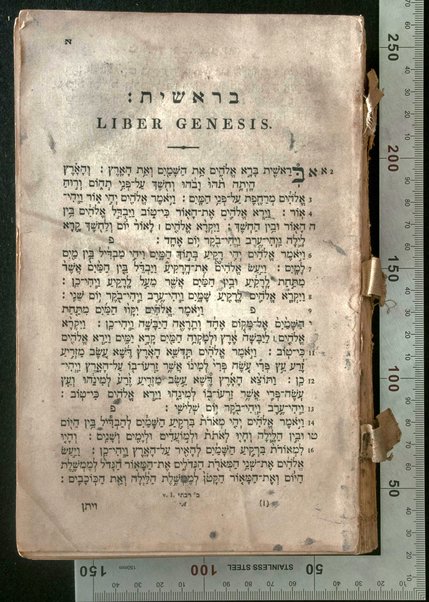 א
בראשית:
LIBER GENESIS.
א א בְּרֵאשִׁית בָּרָא אֱלֹהִים אֵת הַשָּׁמַיִם וְאֵת הָאָרֶץ : וְהָאָרֶץ 2
הָיְתָה תֹהוּ וָבֹהוּ וְחֹשֶׁךְ עַל־פְּנֵי תְהוֹם וְרוּחַ
3 אֱלֹהִים מְרַחֶפֶת עַל־פְּנֵי הַמָּיִם : וַיֹּאמֶר אֱלֹהִים יְהִי אוֹר וַיְהִי־
4 אוֹר : וַיַּרְא אֱלֹהִים אֶת־הָאוֹר כִּי־טוֹב וַיַּבְדֵּל אֱלֹהִים בֵּין
ה הָאוֹר וּבֵין הַחֹשֶׁךְ : וַיִּקְרָא אֱלֹהִים ׀ לָאוֹר יוֹם וְלַחֹשֶׁךְ קָרָא
לָיְלָה וַיְהִי־עֶרֶב וַיְהִי־בֹקֶר יוֹם אֶחָד : פ
6 וַיֹּאמֶר אֱלֹהִים יְהִי רָקִיעַ בְּתוֹךְ הַמָּיִם וִיהִי מַבְדִּיל בֵּין מַיִם
7 לָמָיִם : וַיַּעַשׂ אֱלֹהִים אֶת־הָרָקִיעַ וַיַּבְדֵּל בֵּין הַמַּיִם אֲשֶׁר
מִתַּחַת לָרָקִיעַ וּבֵין הַמַּיִם אֲשֶׁר מֵעַל לָרָקִיעַ וַיְהִי־כֵן :
8 וַיִּקְרָא אֱלֹהִים לָרָקִיעַ שָׁמָיִם וַיְהִי־עֶרֶב וַיְהִי־בֹקֶר יוֹם שֵׁנִי :
9 פ וַיֹּאמֶר אֱלֹהִים יִקָּווּ הַמַּיִם מִתַּחַת
י הַשָּׁמַיִם אֶל־מָקוֹם אֶחָד וְתֵרָאֶה הַיַּבָּשָׁה וַיְהִי־כֵן : וַיִּקְרָא
אֱלֹהִים ׀ לַיַּבָּשָׁה אֶרֶץ וּלְמִקְוֵה הַמַּיִם קָרָא יַמִּים וַיַּרְא אֱלֹהִים
11 כִּי־טוֹב : וַיֹּאמֶר אֱלֹהִים תַּדְשֵׁא הָאָרֶץ דֶּשֶׁא עֵשֶׂב מַזְרִיעַ
זֶרַע עֵץ פְּרִי עֹשֶׂה פְּרִי לְמִינוֹ אֲשֶׁר זַרְעוֹ־בוֹ עַל־הָאָרֶץ וַיְהִי־
12 כֵן : וַתּוֹצֵא הָאָרֶץ דֶּשֶׁא עֵשֶׂב מַזְרִיעַ זֶרַע לְמִינֵהוּ וְעֵץ
עֹשֶׂה־פְּרִי אֲשֶׁר זַרְעוֹ־בוֹ לְמִינֵהוּ וַיַּרְא אֱלֹהִים כִּי־טוֹב :
13 וַיְהִי־עֶרֶב וַיְהִי־בֹקֶר יוֹם שְׁלִישִׁי : פ
14 וַיֹּאמֶר אֱלֹהִים יְהִי מְאֹרֹת בִּרְקִיעַ הַשָּׁמַיִם לְהַבְדִּיל בֵּין הַיּוֹם
טו וּבֵין הַלָּיְלָה וְהָיוּ לְאֹתֹת וּלְמוֹעֲדִים וּלְיָמִים וְשָׁנִים : וְהָיוּ
16 לִמְאוֹרֹת בִּרְקִיעַ הַשָּׁמַיִם לְהָאִיר עַל־הָאָרֶץ וַיְהִי־כֵן : וַיַּעַשׂ
אֱלֹהִים אֶת־שְׁנֵי הַמְּאֹרֹת הַגְּדֹלִים אֶת־הַמָּאוֹר הַגָּדֹל לְמֶמְשֶׁלֶת
הַיּוֹם וְאֶת־הַמָּאוֹר הַקָּטֹן לְמֶמְשֶׁלֶת הַלַּיְלָה וְאֵת הַכּוֹכָבִים :
ב׳ רבתי v. 1.
(1)
ויתן
250
200
150
100
50
150 150mm 100 STAINLESS STEEL 50